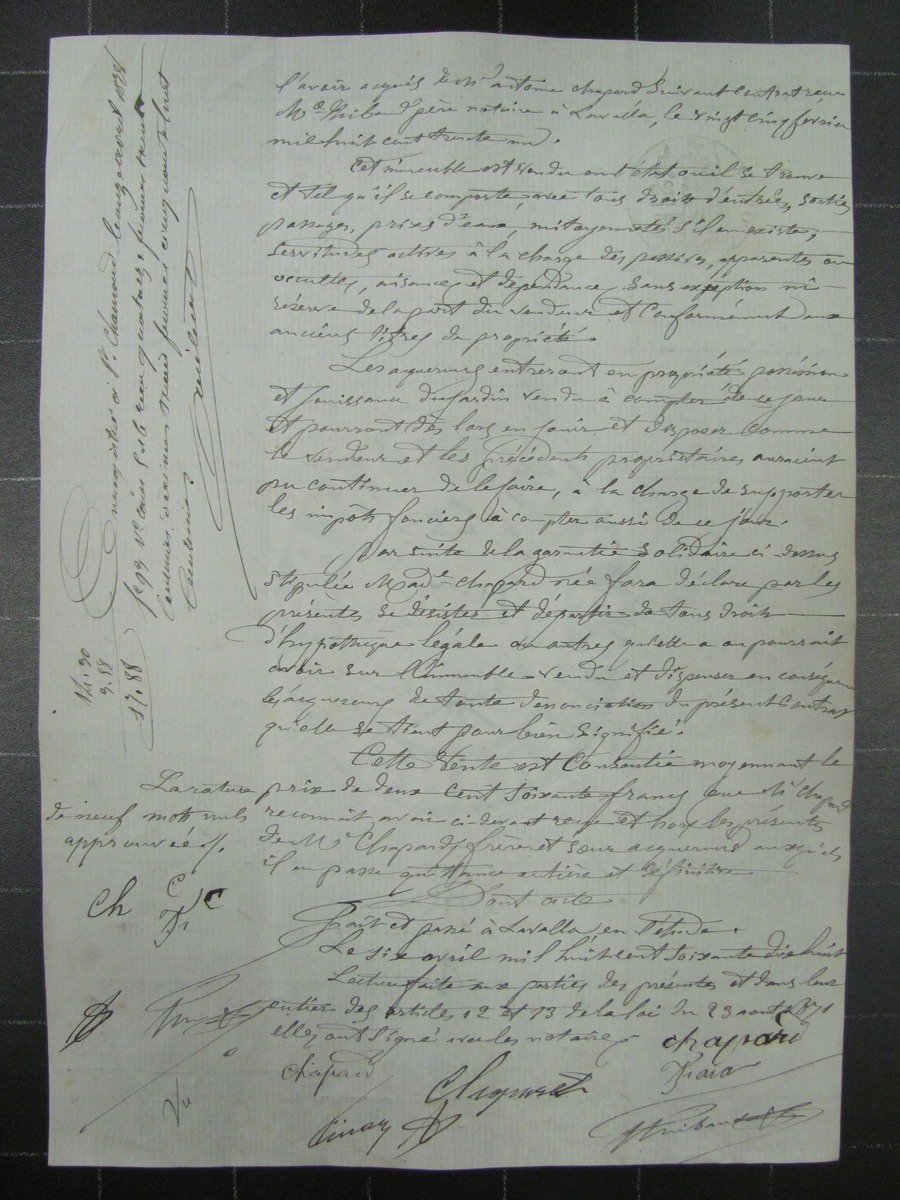 l'avoir acquis de Mr antoine chapard Suivant contrat reçu
Me Thibaud père notaire à Lavalla, le vingt cinq fevrier
mil huit cent trente un.
Cet immeuble est vendu en l'état ou il se trouve
et tel qu'il se comporte avec tous droits d'entrées, sorties
passages, prises d'eau, mitoyennetés s'il en existe,
servitudes actives à la charge des passives, apparentes ou
occultes, aisances et dependances Sans exception ni
réserve de la part du vendeur et Conformément aux
anciens titres de propriété.
Les acquereurs entreront en propriété, possession
et jouissance du jardin vendu à compter de ce jour
et pourront dès lors en jouir et disposer comme
le vendeur et les précédents propriétaires auraient
pu continuer de le faire, à la charge de supporter
les impôts fonciers à compter aussi de ce jour.
Par suite de la garantie solidaire ci dessus
stipulée Made chapard née fara déclare par les
présentes se désister et départir de tous droits
d'hypothèque légale ou autres qu'elle a ou pourrait
avoir sur l'immeuble vendu et dispenser en conséquence
les acquereurs de toute denonciation du présent Contrat
qu'elle se tient pour bien Signifié.
Cette vente est Consentie moyennant le
prix de deux cent soixante francs que Mr chapard
reconnait avoir ci-devant reçu et hors les présentes
de Mrs Chapard frère et soeur acquereurs auxquels
il en passe quittance entière et définitive
Dont acte
Fait et passé à Lavalla en l'étude.
Le six avril mil huit cent soixante dix huit
Lecture faite aux parties des présentes et dans leur
entier des articles 12 et 13 de la loi du 23 aout 1871
elles ont signé avec les notaires
chapard
chapard
Chapard
Fara
Thibaud
La rature
de neuf mots nuls
approuvée
Ch C
F C
Enregistré à St Chamond le onze avril 1878
fo 99 Vo cases 5 et 6 reçu quatorze francs
centimes décimes trois francs cinquante huit
Centimes
14.30
3.58
17.88